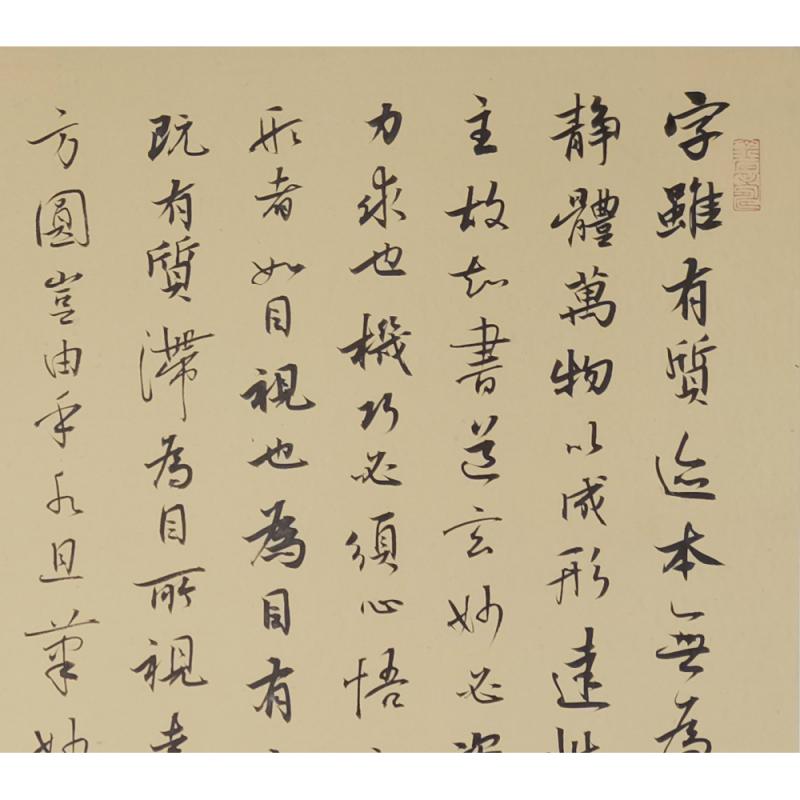 字雖有質迹本無為
静體萬物以成形達
主故知書道玄妙必資
力求也機巧必須心悟
形者如目視也為目有
既有質滯為目所視
方圓豈由乎水且筆妙